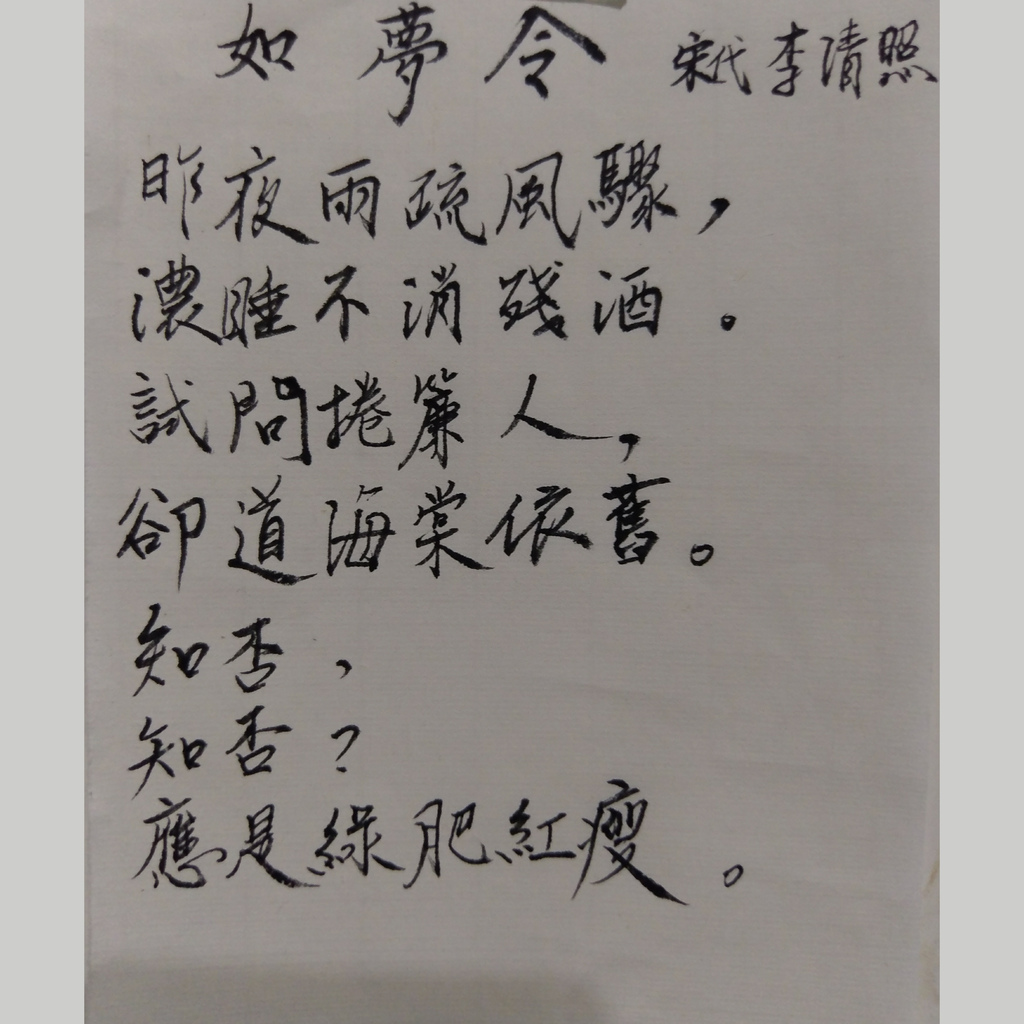 如夢令 宋代 李清照
昨夜雨疏風驟，
濃睡不消殘酒。
試問捲簾人，
卻道海棠依舊。
知否，
知否？
應是綠肥紅瘦。